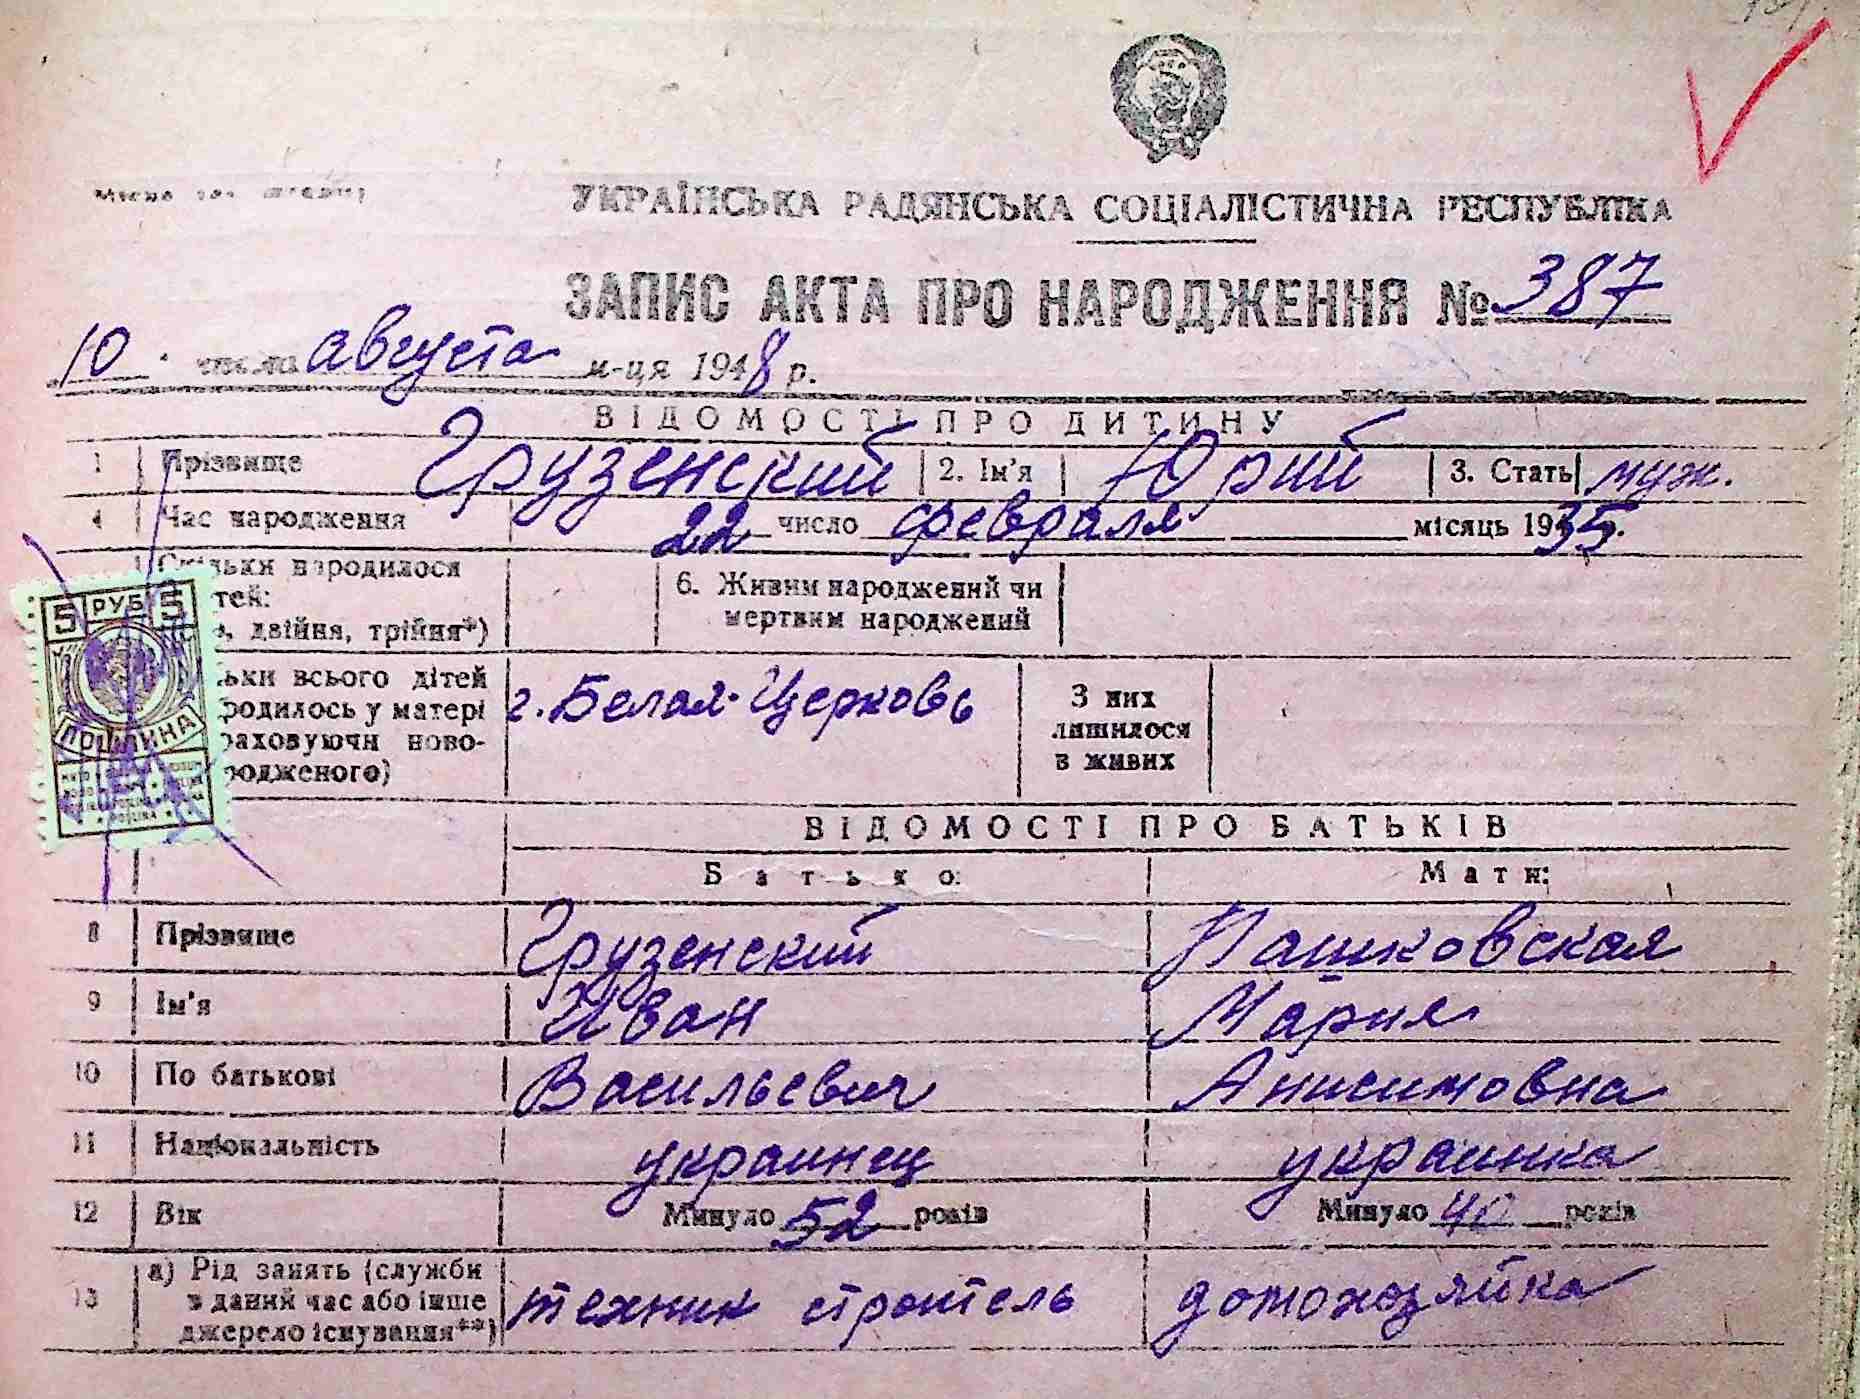 УКРАЇНСЬКА РАДЯНСЬКА СОЦІАЛІСТИЧНА РЕСПУБЛІКА
ЗАПИС АКТА ПРО НАРОДЖЕННЯ № 387
10 числа августа м-ця 1948 р.
ВІДОМОСТІ ПРО ДИТИНУ
1 Прізвище Грузенский 2. Ім'я Юрий 3. Стать муж.
4 Час народження 22 число февраля місяць 1935.
Скільки народилося
тей:
, двійня, трійня*)
6. Живим народжений чи
мертвим народжений
ьки всього дітей
родилось у матері
раховуючи ново-
родженого)
г. Белая-Церковь
З них
лишилося
в живих
5 РУБ 5
ПОШЛИНА
ВІДОМОСТІ ПРО БАТЬКІВ
Батько: Мати:
8 Прізвище Грузенский Пашковская
9 Ім'я Иван Мария
10 По батькові Васильевич Анисимовна
11 Національність украинец украинка
12 Вік Минуло 52 років Минуло 40 років
13 а) Рід занять (служби
в даний час або інше
джерело існування**)
техник строитель домохозяйка